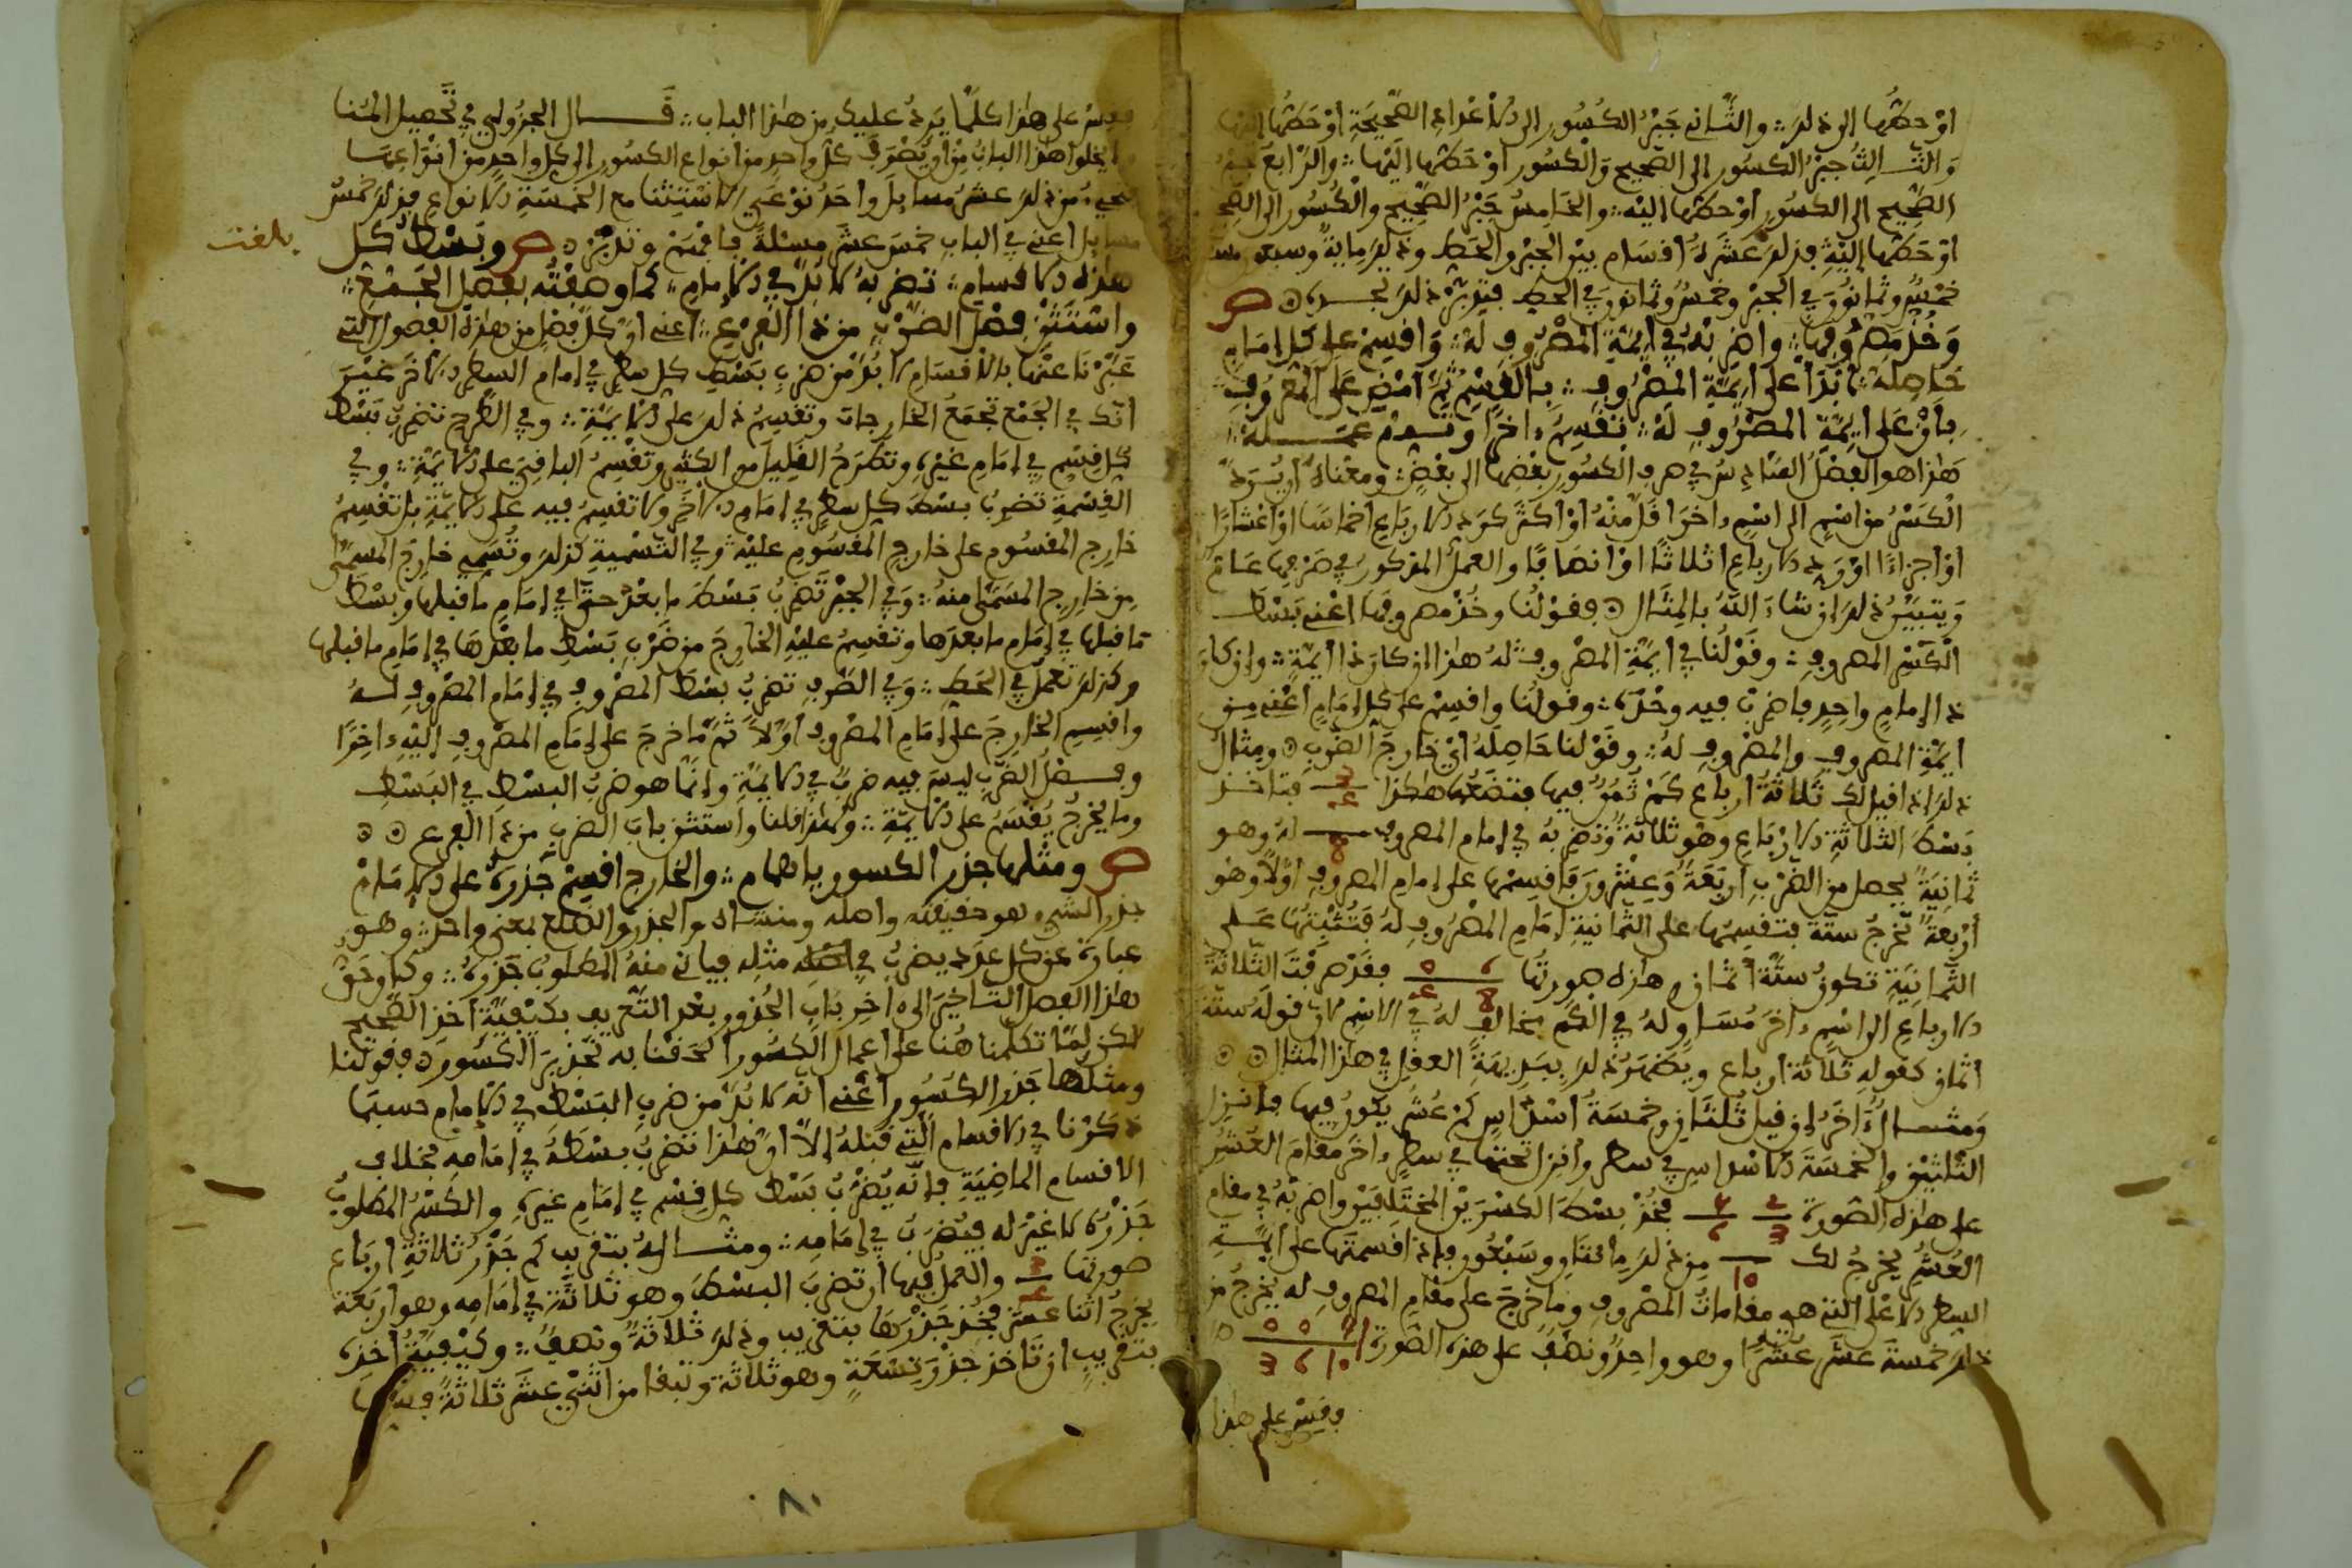 او حطها الى ذلك والثاني جبر الكسور الى الاعداد الصحيحة او حطها اليها
والثالث جبر الكسور الى الصحيح والكسور او حطها اليها والرابع جبر
الصحيح الى الكسور او حطها اليه والخامس جبر الصحيح والكسور الى الصحيح
او حطها اليه فذلك عشرة اقسام بين الجبر والحط وذلك ماية وسبعون
خمس وثمانون في الجبر وخمس وثمانون في الحط فتدبر ذلك تجده ص
وخذ صروفها واضربه في ايمة المصروف له واقسمن على كل امام
حاصله تبدأ على ايمة المصروف بالقسم ثم امض على المعروف
باو على ايمة المصروف له تقسيم ءاخرا وتم عمله
هذا هو الفصل السادس في صرف الكسور بعضها الى بعض ومعناه ان يرد
الكسر من اسم الى اسم ءاخر اقل منه او اكثر كرد الارباع اخماسا او اعشارا
او اجزاءا او رد الارباع اثلاثا او انصافا والعمل المذكور في صرفها عام
ويتبين ذلك ان شاء الله بالمثال فقولنا وخذ مصروفها اعني بسط
الكسر المصروف وقولنا في ايمة المصروف له هذا ان كان ذا ايمة وان كان
ذا امام واحد فاضرب فيه وحده وقولنا واقسم على كل امام اعني من
ايمة المصروف والمصروف له وقولنا حاصله اي خارج الضرب ومثال
ذلك اذا قيل لك ثلاثة ارباع كم ثمن فيها فتضعها هكذا 3/4 فتاخذ
بسط الثلاثة الارباع وهو ثلاثة وتضربه في امام المصروف له وهو 8
ثمانية يحصل من الضرب اربعة وعشرون فاقسمها على امام المصروف اولا وهو
اربعة تخرج ستة فتقسمها على الثمانية امام المصروف له فتثبتها على
الثمانية تكون ستة اثمان وهذه صورتها 6/8 0/4 فقد صرفت الثلاثة
الارباع الى اسم ءاخر مساو له في الكم مخالف له في الاسم لان قوله ستة
اثمان كقوله ثلاثة ارباع ويظهر ذلك ببديهة العقل في هذا المثال
ومثال ءاخر ان قيل ثلثان وخمسة اسداس كم عشر يكون فيها فانزل
الثلثين والخمسة الاسداس في سطر وانزل تحتها في سطر ءاخر مقام العشر
على هذه الصورة 2/3 5/6 فخذ بسط الكسرين المختلفين واضربه في مقام
العشر يخرج لك 10 من ذلك مائتان وسبعون فاذا قسمتها على ايمة
السطر الاعلى التي هي مقامات المصروف وما خرج على مقام المصروف له يخرج من
ذلك خمسة عشر عشرا وهو واحد ونصف على هذه الصورة 0 0 5 1 / 3 6 10
وقس على هذا
وقس على هذا كلما يرد عليك من هذا الباب قال الجزولي في تحصيل المنا
لا يخلوا هذا الباب من ان يصرف كل واحد من انواع الكسور الى كل واحد من انواعها
فيجيء من ذلك عشر مسايل واحد نوعي الاستثنا مع الخمسة الانواع فذلك خمس
مسايل اعني في الباب خمس عشر مسئلة فافهم وتدبر ص وبسط كل
بلغت
هذه الاقسام تضربه لا بد في الامام كما وصفته بفصل الجمع
واستثن فصل الضرب من ذا الفرع اعني ان كل فصل من هذه الفصول التي
عبرنا عنها بالاقسام لا بد من ضرب بسط كل سطر في امام السطر الاخر غير
انك في الجمع تجمع الخارجات وتقسم ذلك على الايمة وفي الطرح تضرب بسط
كل قسم في امام غيره وتطرح القليل من الكثير وتقسم الباقي على الايمة وفي
القسمة تضرب بسط كل سطر في امام الاخر ولا تقسم فيه على الايمة بل تقسم
خارج المقسوم على خارج المقسوم عليه وفي التسمية كذلك وتسمي خارج المسمى
من خارج المسمى منه وفي الجبر تضرب بسط ما بعد حتى في امام ما قبلها وبسط
ما قبلها في امام ما بعدها وتقسم عليه الخارج من ضرب بسط ما بعدها في امام ما قبلها
وكذلك تعمل في الحط وفي الصرف تضرب بسط المصروف في امام المصروف له
واقسم الخارج على امام المصروف اولا ثم ما خرج على امام المصروف اليه ءاخرا
وفصل الضرب ليس فيه ضرب في الايمة وانما هو ضرب البسط في البسط
وما يخرج يقسم على الايمة ولهذا قلنا واستثن باب الضرب من ذا الفرع
ص ومثلها جذر الكسور يا همام والخارج اقسم جذره على الامام
جذر الشيء هو حقيقته واصله ومنشاه والجذر والضلع بمعنى واحد وهو
عبارة عن كل عدد يضرب في مثله فياتي منه المطلوب جذره وكان حق
هذا الفصل التاخير الى ءاخر باب الجذور بعد التعريف بكيفية اخذ الصحيح
لكن لما تكلمنا هنا على اعمال الكسور الحقنا به تجذير الكسور فقولنا
ومثلها جذر الكسور اعني انه لا بد من ضرب البسط في الامام حسبما
ذكرنا في الاقسام التي قبله الا ان هذا تضرب بسطه في امامه بخلاف
الاقسام الماضية فانه يضرب بسط كل قسم في امام غيره والكسر المطلوب
جذره لا غير له فيضرب في امامه ومثاله بتقريب كم جذر ثلاثة ارباع
صورتها 3/4 والعمل فيها ان تضرب البسط وهو ثلاثة في امامه وهو اربعة
يخرج اثنا عشر فخذ جذرها بتقريب وذلك ثلاثة ونصف وكيفية اخذه
بتقريب ان تاخذ جذر تسعة وهو ثلاثة وتبقا من اثني عشر ثلاثة
٨٠